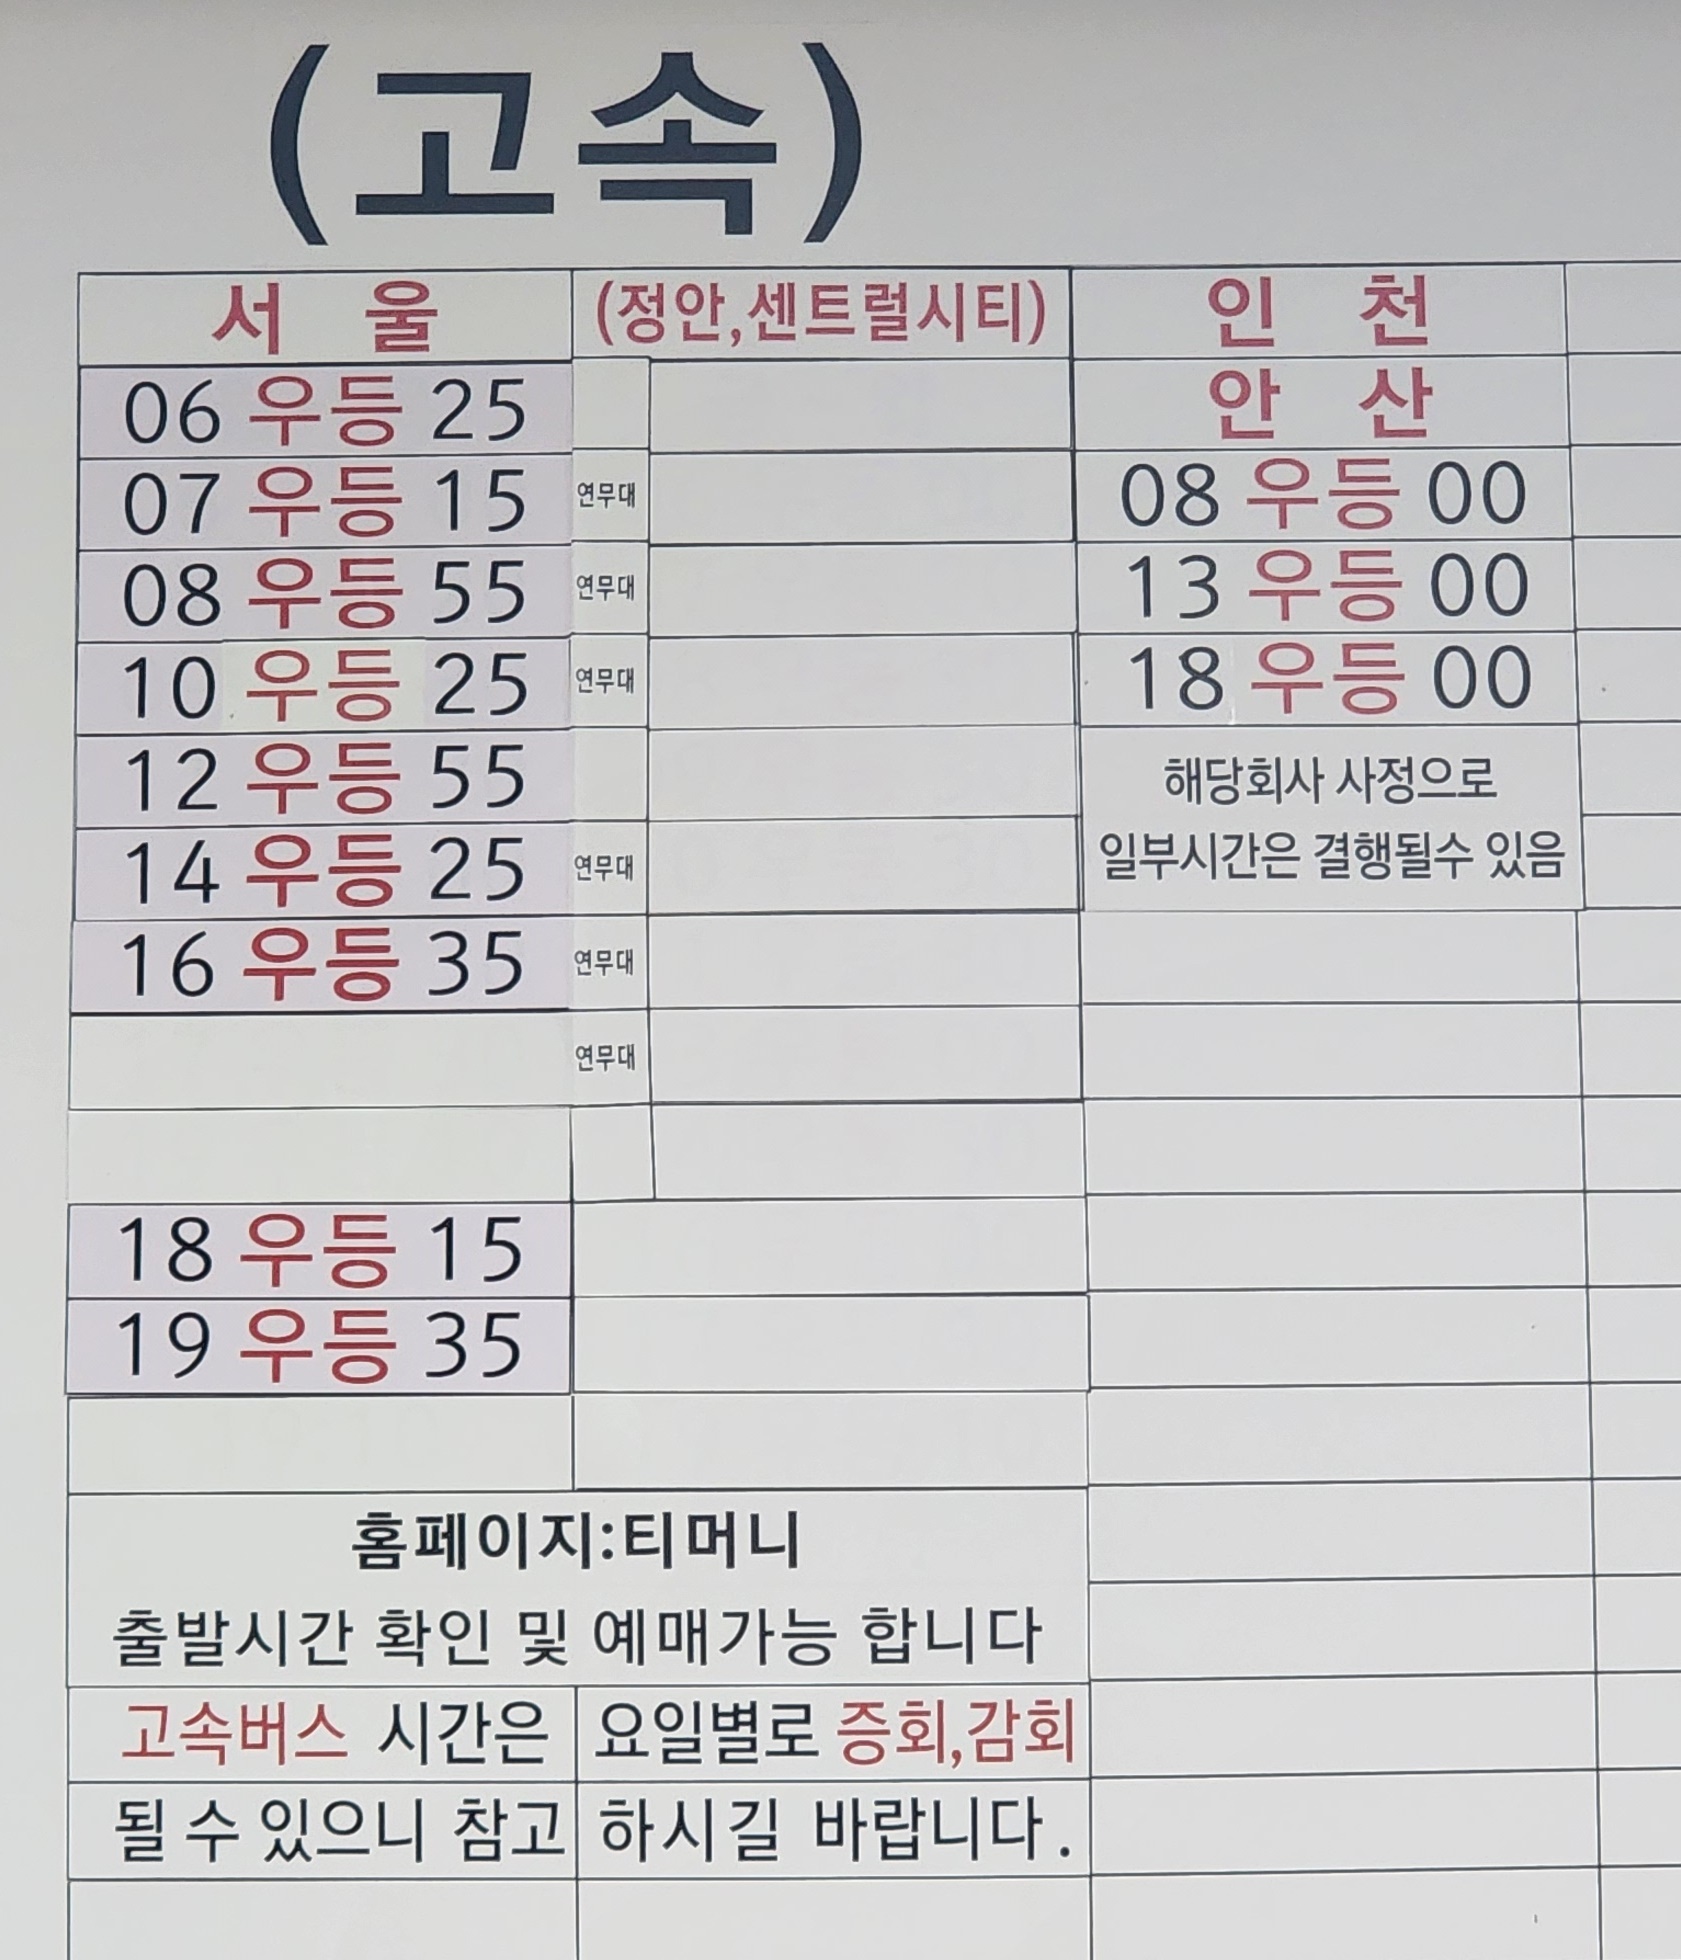 (고속)
서 울 (정안,센트럴시티) 인 천
06 우등 25 안 산
07 우등 15 연무대 08 우등 00
08 우등 55 연무대 13 우등 00
10 우등 25 연무대 18 우등 00
12 우등 55 해당회사 사정으로
14 우등 25 연무대 일부시간은 결행될수 있음
16 우등 35 연무대
연무대
18 우등 15
19 우등 35
홈페이지:티머니
출발시간 확인 및 예매가능 합니다
고속버스 시간은 요일별로 증회,감회
될 수 있으니 참고 하시길 바랍니다.